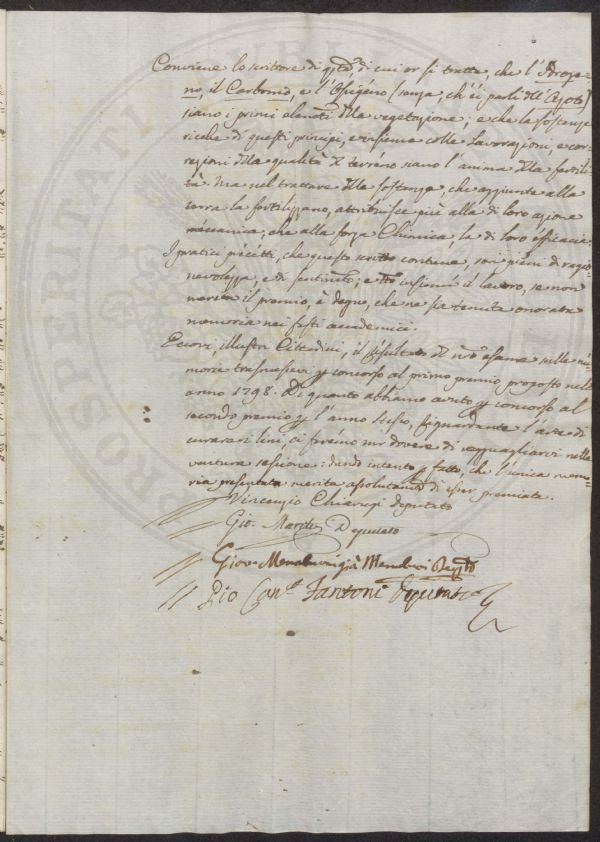 Conviene lo scrittore di qsta, di cui or si tratta, che l'Idroge=
no, il Carbonio, e l'Ossigéno (senza, ch'ei parli dell'Azoto)
siano i primi elemti della vegetazione; e che le sostanze
ricche di questi principj, e insieme colle lavorazioni, e cor=
rezioni della qualità del terréno siano l'anima della fertili=
tà. Ma nel trattare delle sostanze, che aggiunte alla
terra la fertilizzano, attribuisce più alla di loro azione
méccanica, che alla forza Chimica, la di loro efficacia.
I pratici précétti, che questo scritto contiene, son piéni di ragio=
nevolezza, e di sentimto; e tto insiéme il lavoro, se non
merita il premio, è degno, che ne sia tenuta onorata
memoria nei fasti accademici.
Eccovi, illustri Cittadini, il risultato del nro esame sulle me=
morie trasmessevi p concorso al primo premio proposto nell'
anno 1798. Di quanto abbiamo avuto p concorso al
secondo premio p l'anno stesso, riguardante l'arte di
curare i lini, ci farémo un dovere di ragguagliarvi nella
ventura sessione: dando intanto p fatto, che l'unica memo=
ria presentata merita assolutamte di esser premiata.
Vincenzio Chiarugi deputato
Gio. Deputato
Giov. Menabuoni già Deptto
Pio Conte Fantoni Deputato
PROSPERITÀ PUBBL